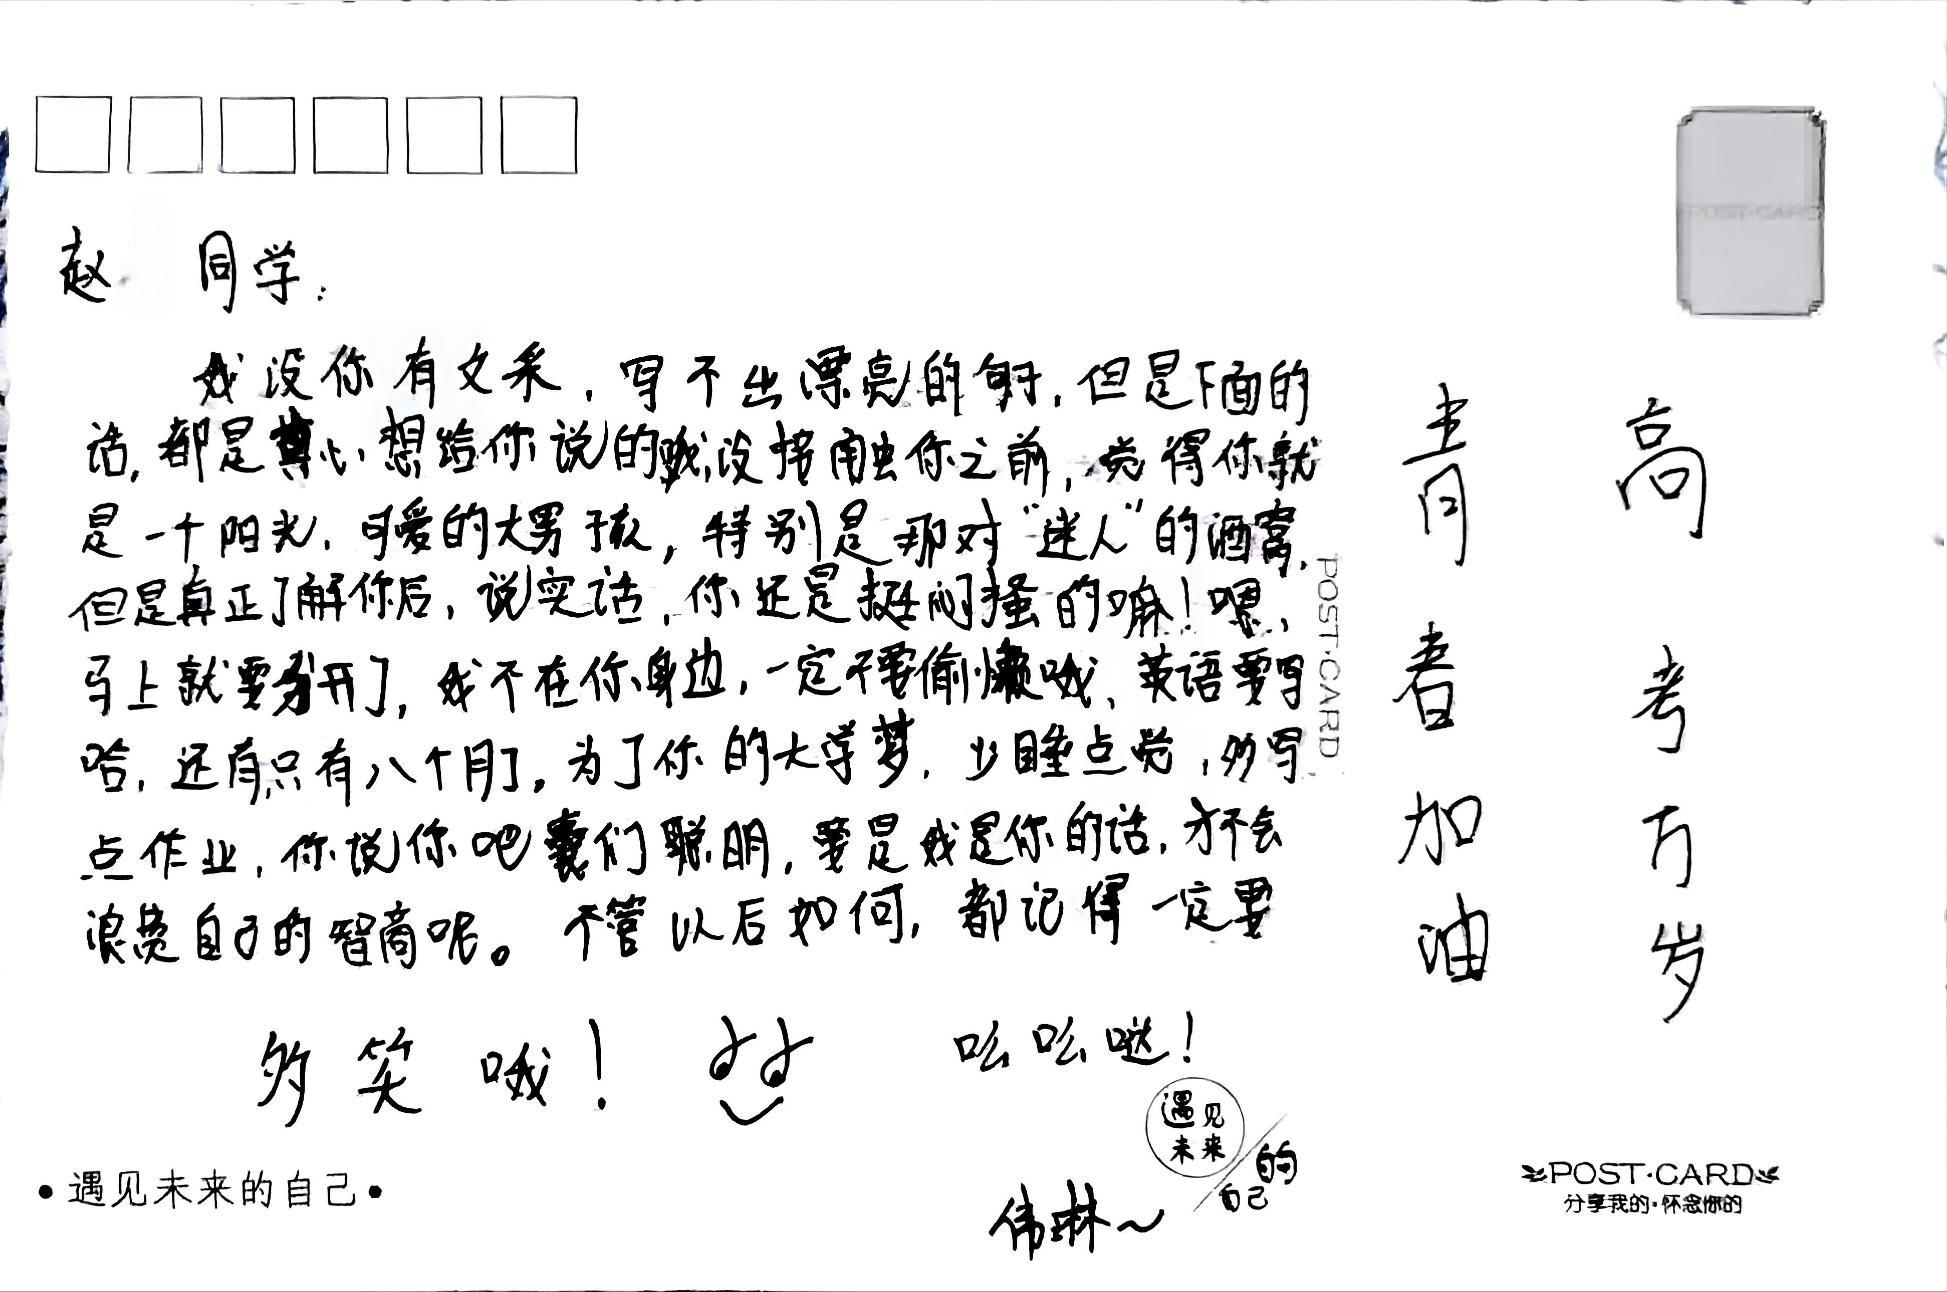 赵 同学:
我没你有文采,写不出漂亮的句子,但是下面的
话,都是真心想给你说的哦,没接触你之前,觉得你就
是一个阳光,可爱的大男孩,特别是那对“迷人”的酒窝,
但是真正了解你后,说实话,你还是挺闷骚的嘛!嗯,
马上就要分开了,我不在你身边,一定不要偷懒哦、英语要写
哈,还有只有八个月了。为了你的大学梦,少睡点觉,多写
点作业,你说你吧 们聪明,要是我是你的话,才不会
浪费自己的智商呢。不管以后如何,都记得一定要
多笑哦! 么么哒!
伟琳~
高考万岁
青春加油
POST·CARD
POST·CARD
遇见
未来
的
自己
•遇见未来的自己•
POST·CARD
分享我的·怀念你的